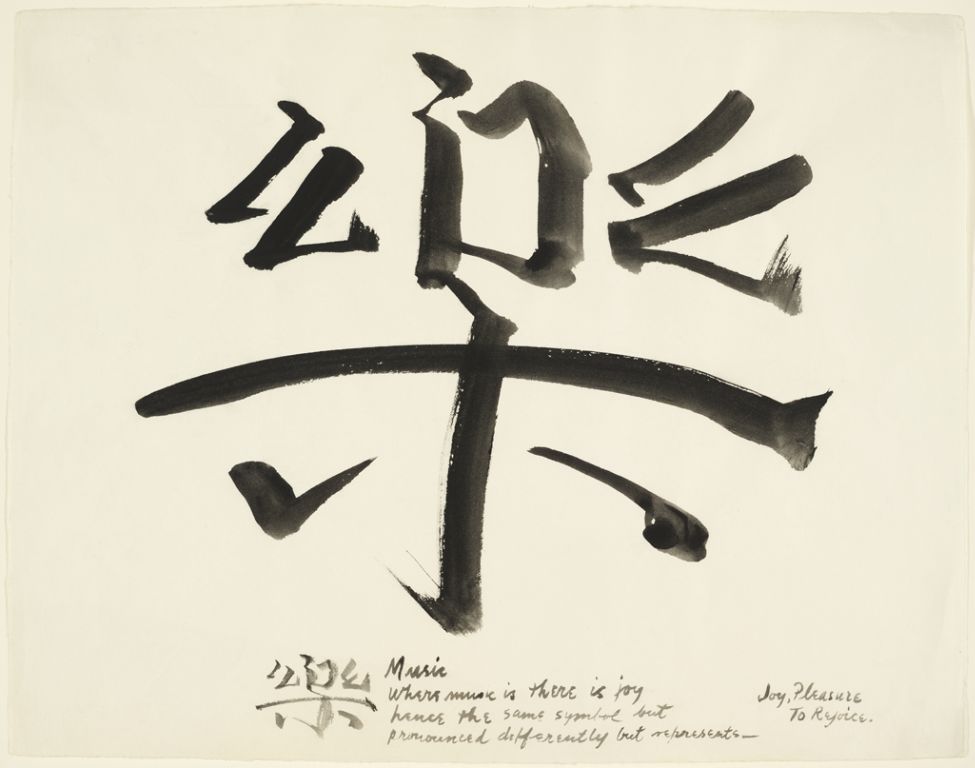 樂
樂 Music
Where music is there is joy
hence the same symbol but
pronounced differently but represents—
Joy, Pleasure
To Rejoice.